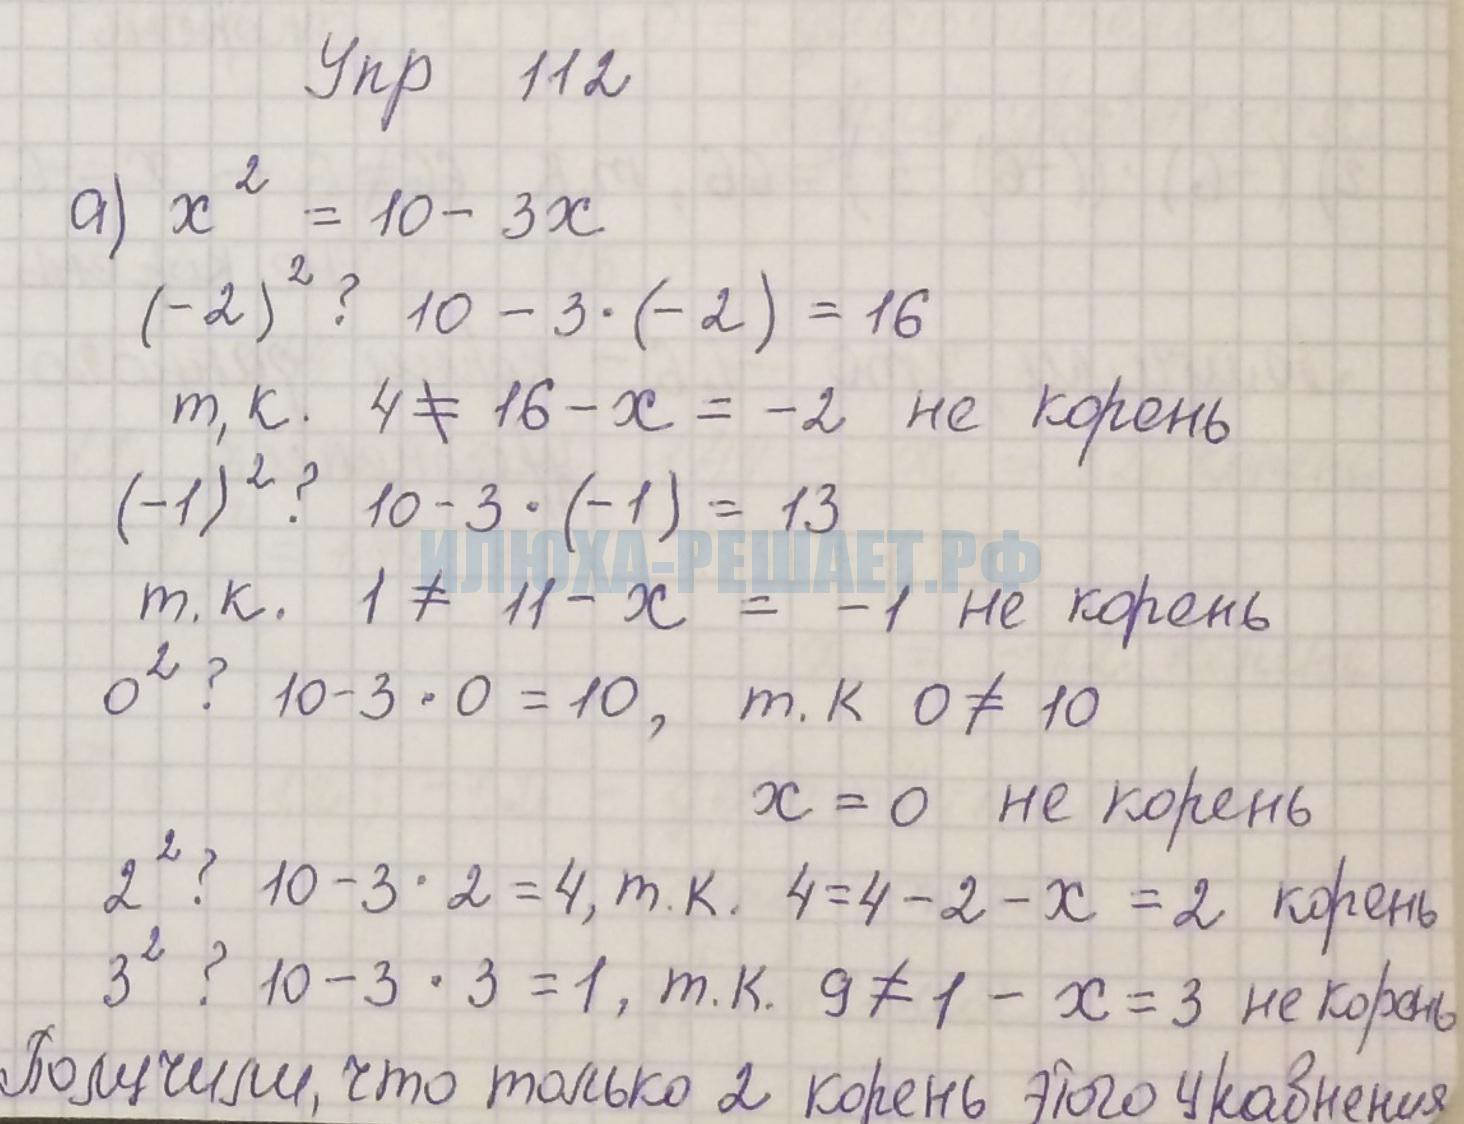 Упр 112
а) x² = 10 - 3x
(-2)² ? 10 - 3·(-2) = 16
т,к. 4 ≠ 16 - x = -2 не корень
(-1)² ? 10 - 3·(-1) = 13
ИЛЮХА-РЕШАЕТ.РФ
т.к. 1 ≠ 11 - x = -1 не корень
0² ? 10 - 3·0 = 10, т.к 0 ≠ 10
x = 0 не корень
2² ? 10 - 3·2 = 4, т.к. 4 = 4 - 2 - x = 2 корень
3² ? 10 - 3·3 = 1, т.к. 9 ≠ 1 - x = 3 не корень
Получили, что только 2 корень этого уравнения